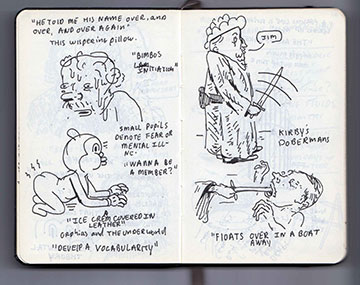 "HE TOLD ME HIS NAME OVER. and
OVER, AND OVER AGAIN"
This wispering pillow.
"BIMBOS
INITIATION"
SMALL PUPILS
DENOTE FEAR OR
MENTAL ILL-
NC-
"WANNA BE
A MEMBER?"
A
"ICE CREM COVERED IN
LEATHER"
Orphius and THE UNDERWORLD
"DEVELP A VOCABULARITY"
JIM
KIRBY'S
DOBERMANS
"FLOATS OVER IN A BOAT
AWAY